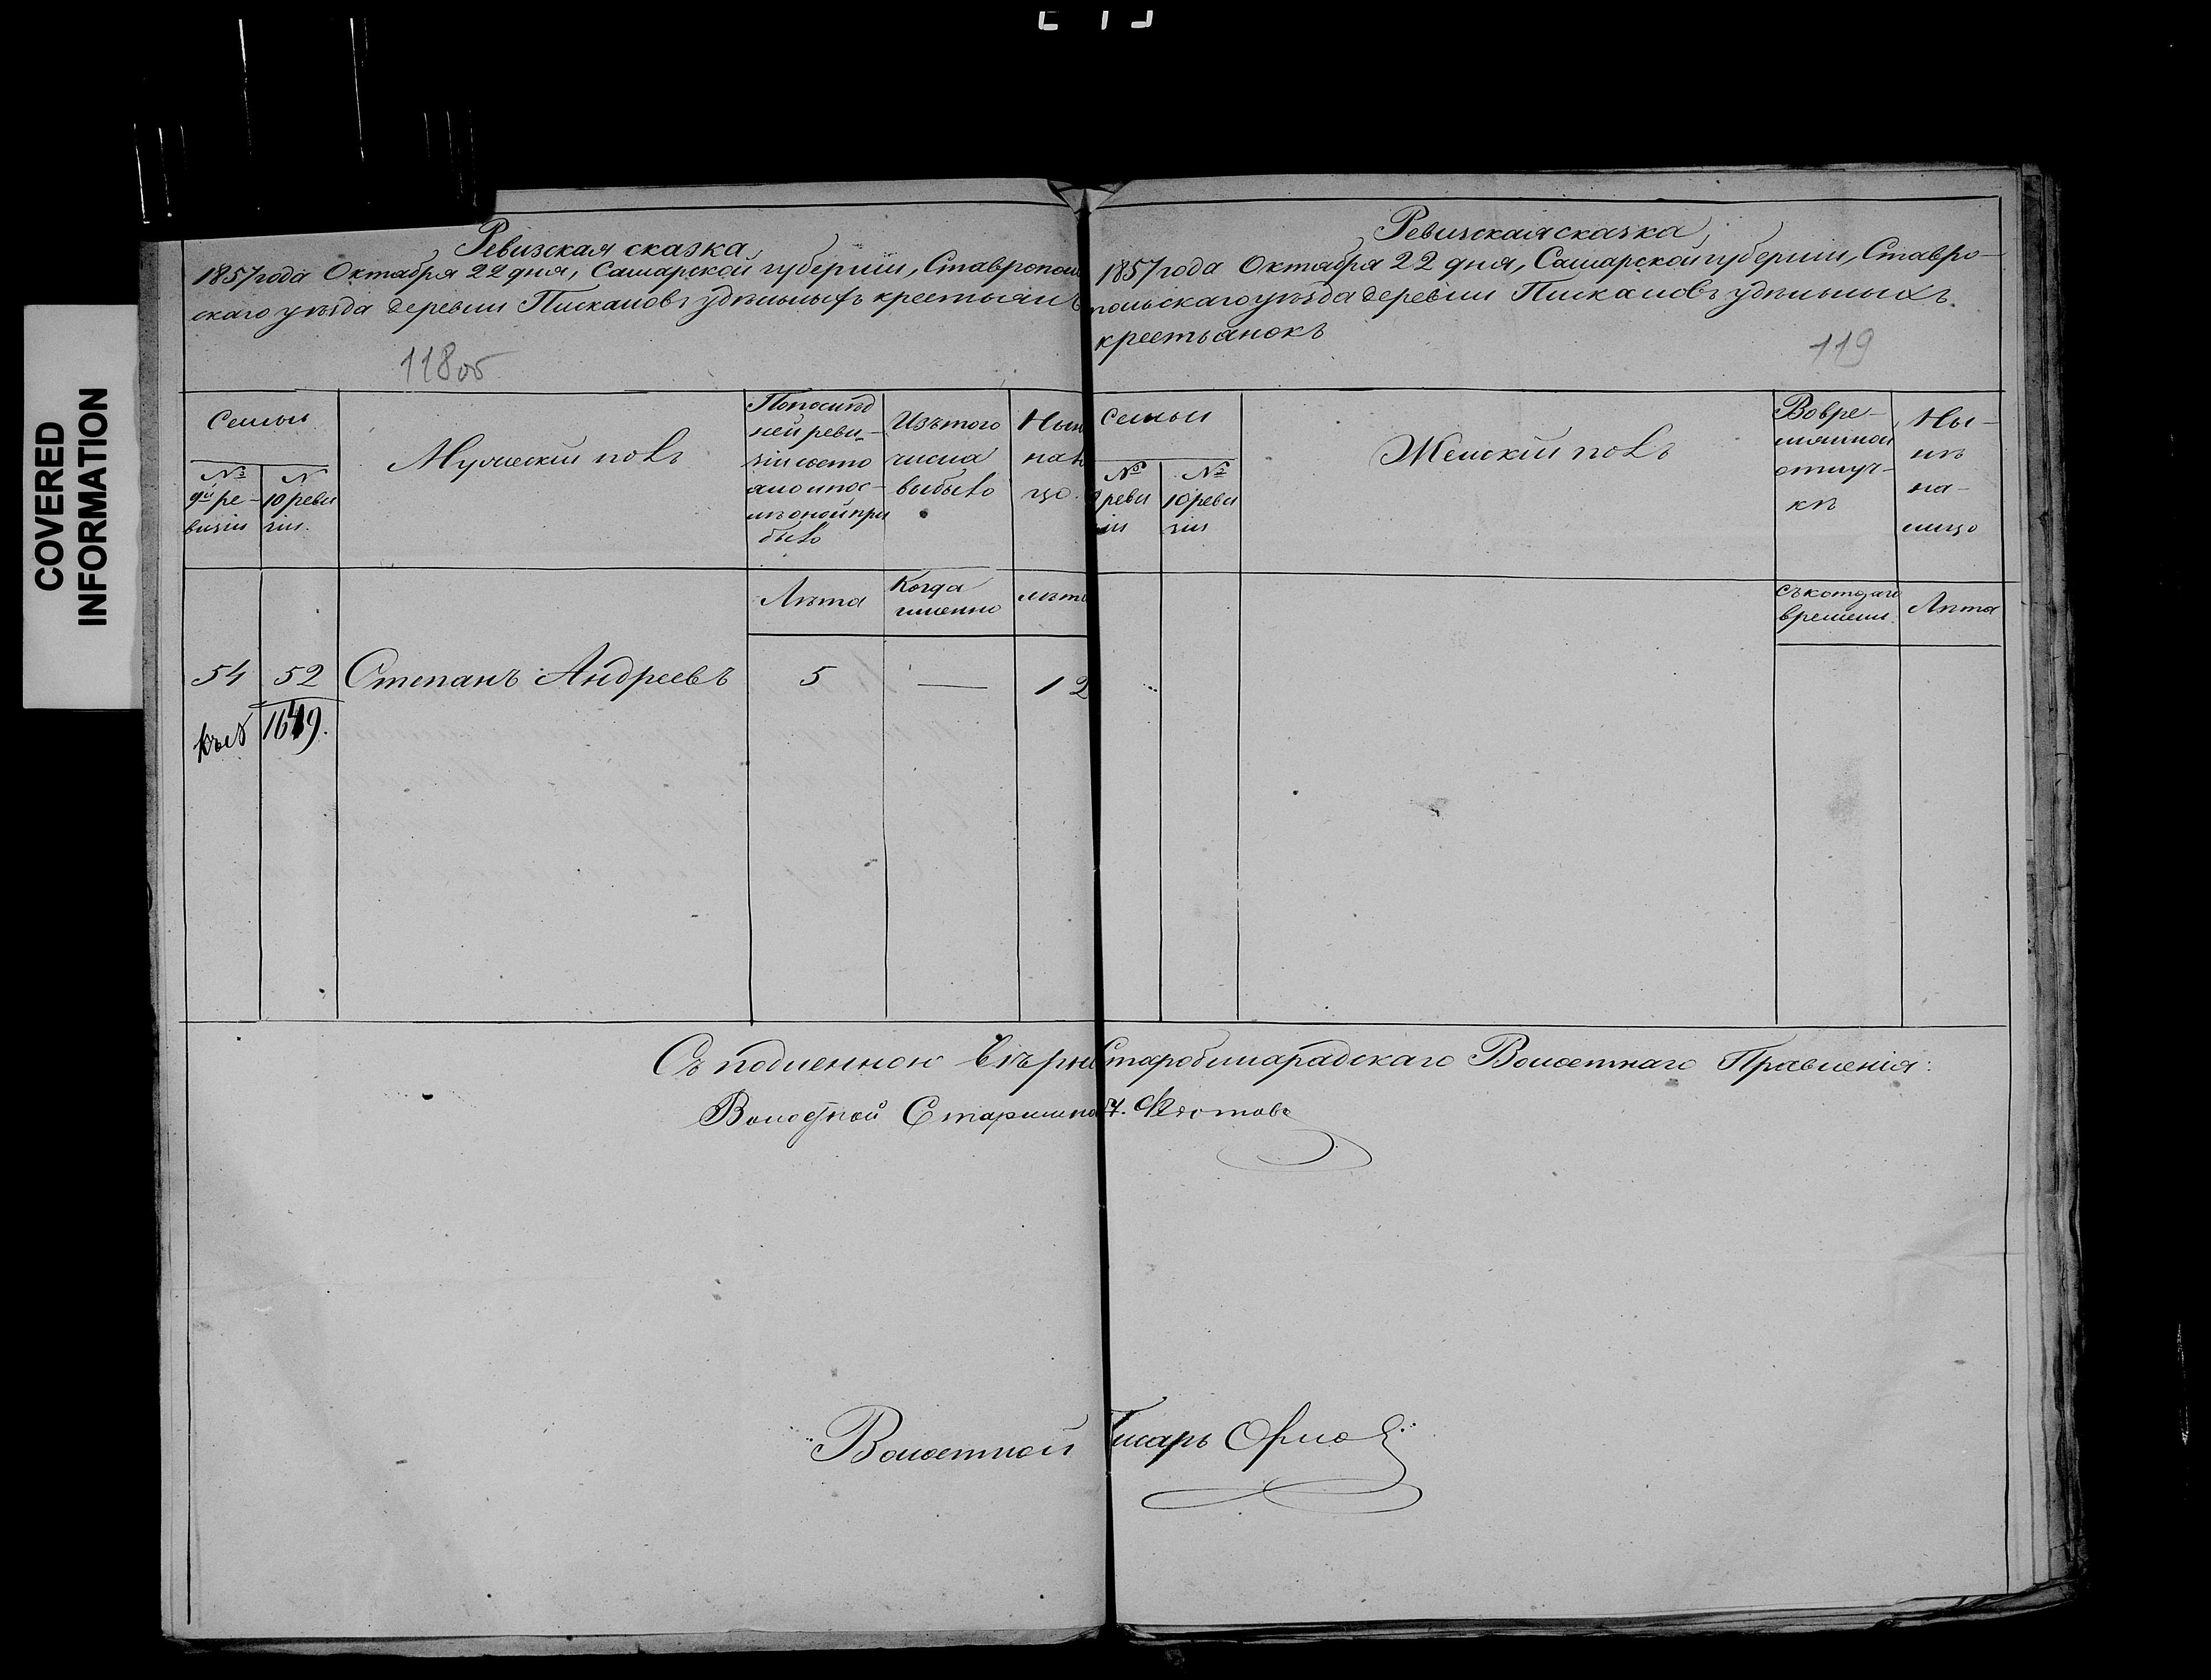 COVERED
INFORMATION
Ревизская сказка,
1857 года Октября 22 дня, Самарской губернiи, Ставрополь
скаго уѣзда деревни Пискаловъ удѣльныхъ крестьянъ
118об
Семьи
№ 9й ре-визiи
№ 10 реви зiи.
Мужескiй полъ
По послѣд
ней реви-
зiи состо
яло и пос-
лѣ оной при
было
Изъ того
числа
выбыло
Нын
нал
цо.
Лѣта
Когда
именно
лѣта
54 52 Степанъ Андреевъ 5 — 12
1649.
Ревизская сказка,
1857 года Октября 22 дня, Самарской губернiи, Ставро-
польскаго уѣзда деревни Пискаловъ удѣльныхъ
крестьянокъ
119
Семьи
№ 9 реви зiи
№ 10 реви зiи
Женскiй полъ
Во вре-
мянной
отлуч-
кѣ
Ны-
нѣ
на-
лицо
Съ котораго
времени.
Лѣта
Съ подленною вѣрно Старобинарадскаго Волостнаго Правленiя:
Волостной Старшина Ѳ. Федотовъ
Волостной Писарь Орлов